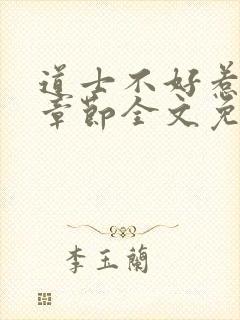 道士不好惹
章節全文免
李玉蘭